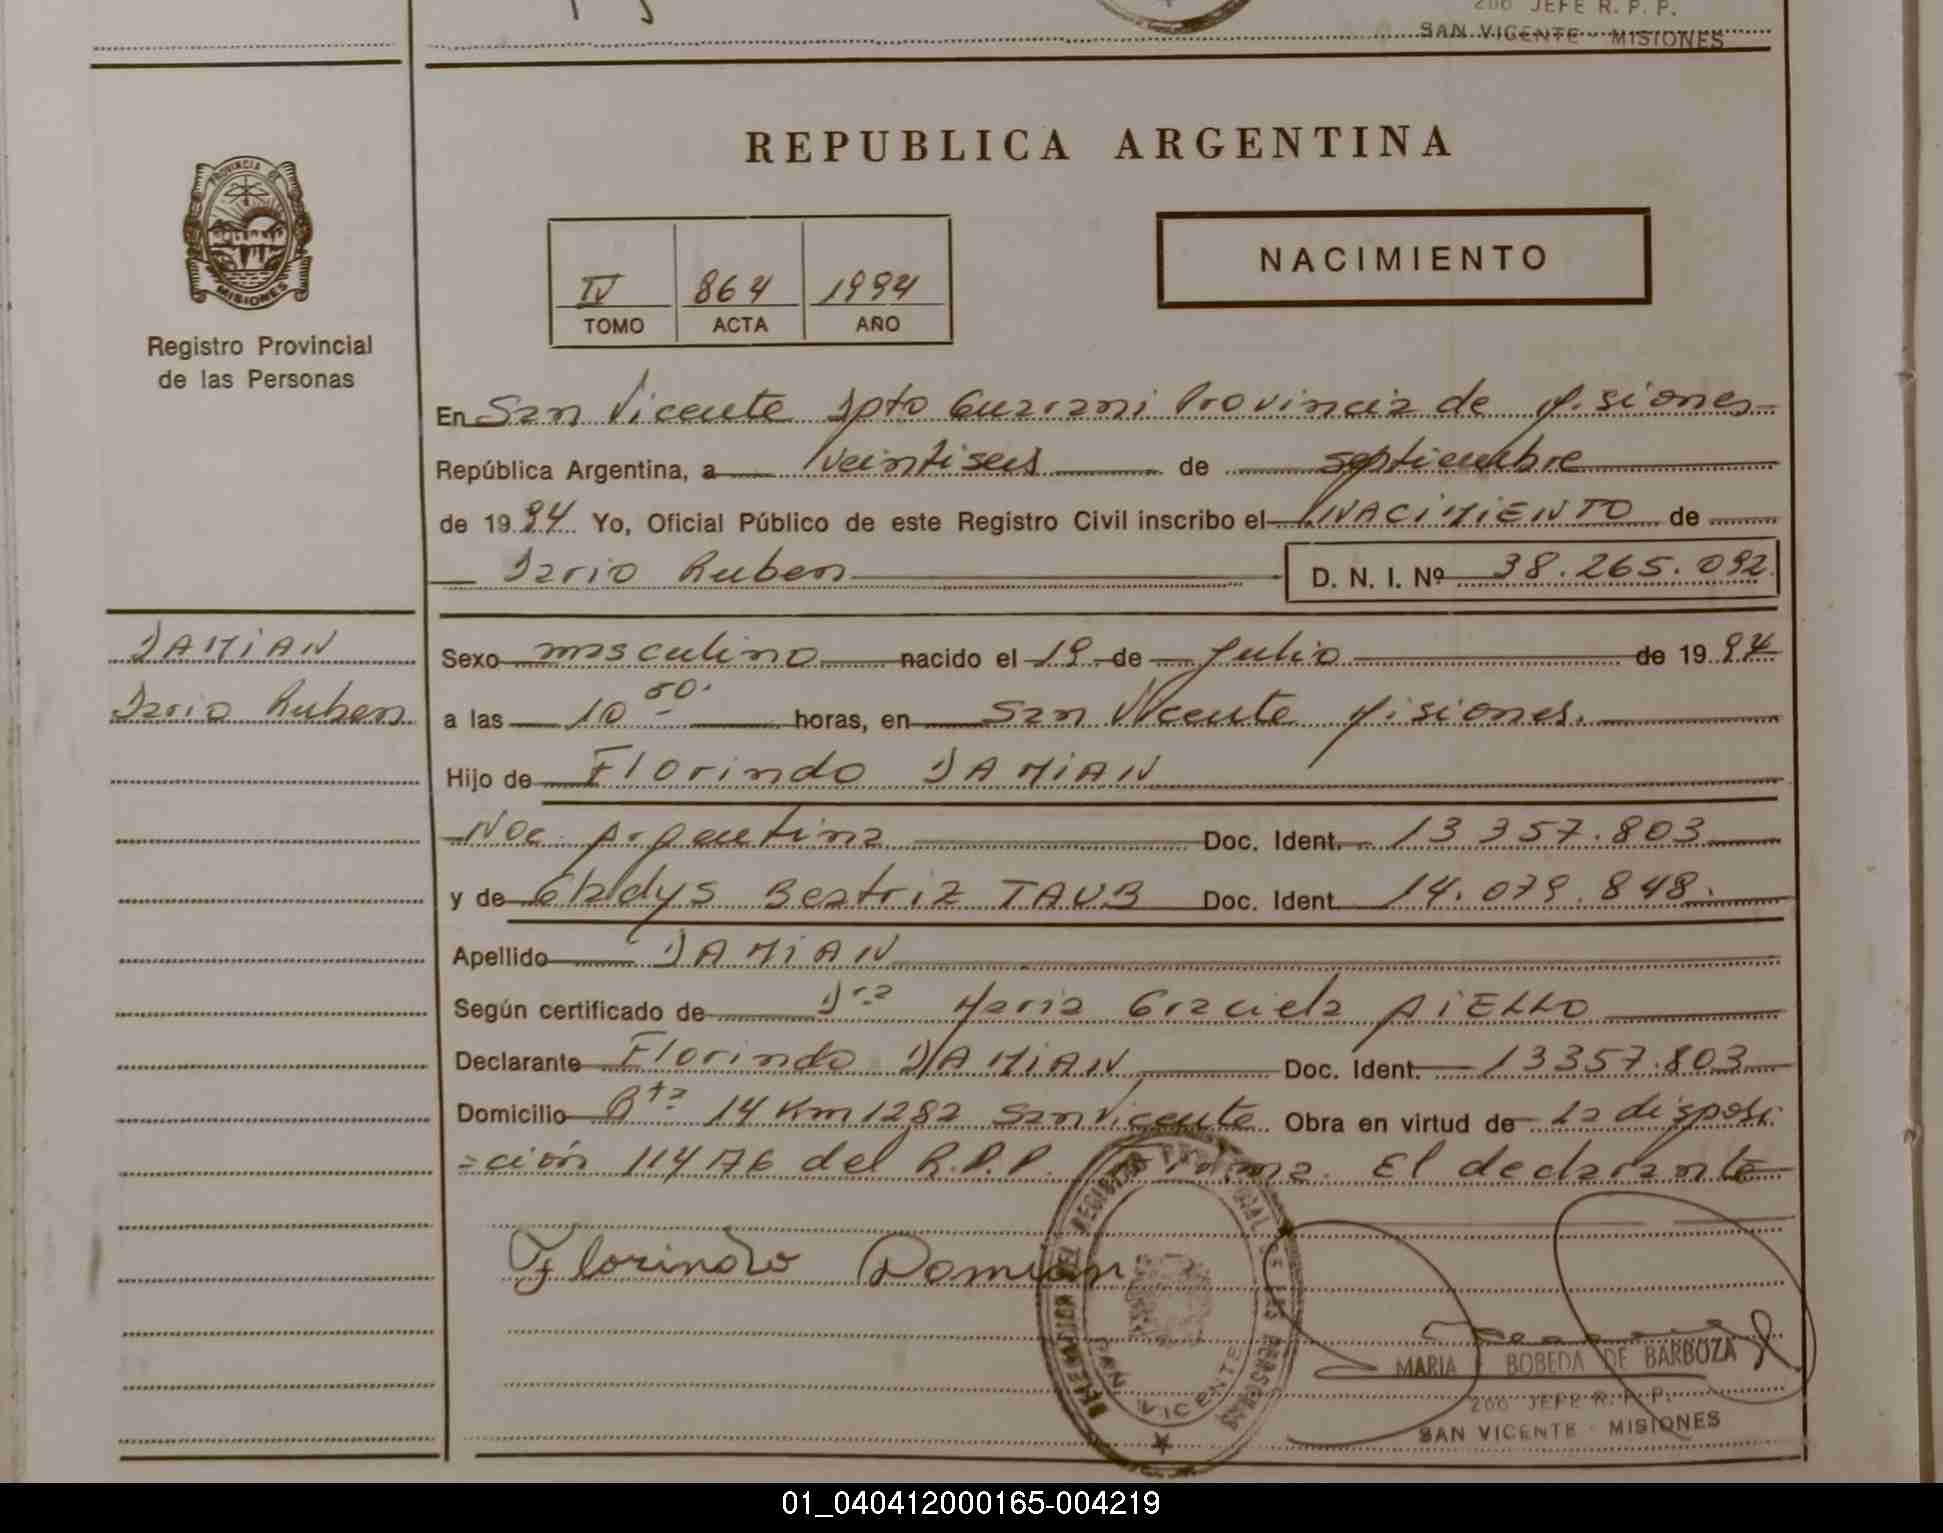 200 JEFE R. P. P.
SAN VICENTE - MISIONES
REPUBLICA ARGENTINA
PROVINCIA DE
MISIONES
Registro Provincial
de las Personas
NACIMIENTO
IV 864 1994
TOMO ACTA AÑO
En San Vicente Dpto Guarani Provincia de Misiones
República Argentina, a veintiseis de septiembre
de 1994 Yo, Oficial Público de este Registro Civil inscribo el NACIMIENTO de
Dario Ruben D. N. I. Nº 38.265.092
DAMIAN
Dario Ruben
Sexo masculino nacido el 19 de Julio de 1994
a las 10 50. horas, en San Vicente Misiones.
Hijo de Florindo DAMIAN
Nac. Argentina Doc. Ident. 13 357.803
y de Gladys Beatriz TAUB Doc. Ident. 14.079.848.
Apellido DAMIAN
Según certificado de Dra Maria Graciela AIELLO
Declarante Florindo DAMIAN Doc. Ident. 13357.803
Domicilio Rta 14 Km 1282 San Vicente Obra en virtud de la disposi
=ción 114/76 del R.P.P. Firma. El declarante
Florindo Domian
SAN VICENTE
MARIA BOBEDA DE BARBOZA
200 JEFE R. P. P.
SAN VICENTE - MISIONES
01_040412000165-004219